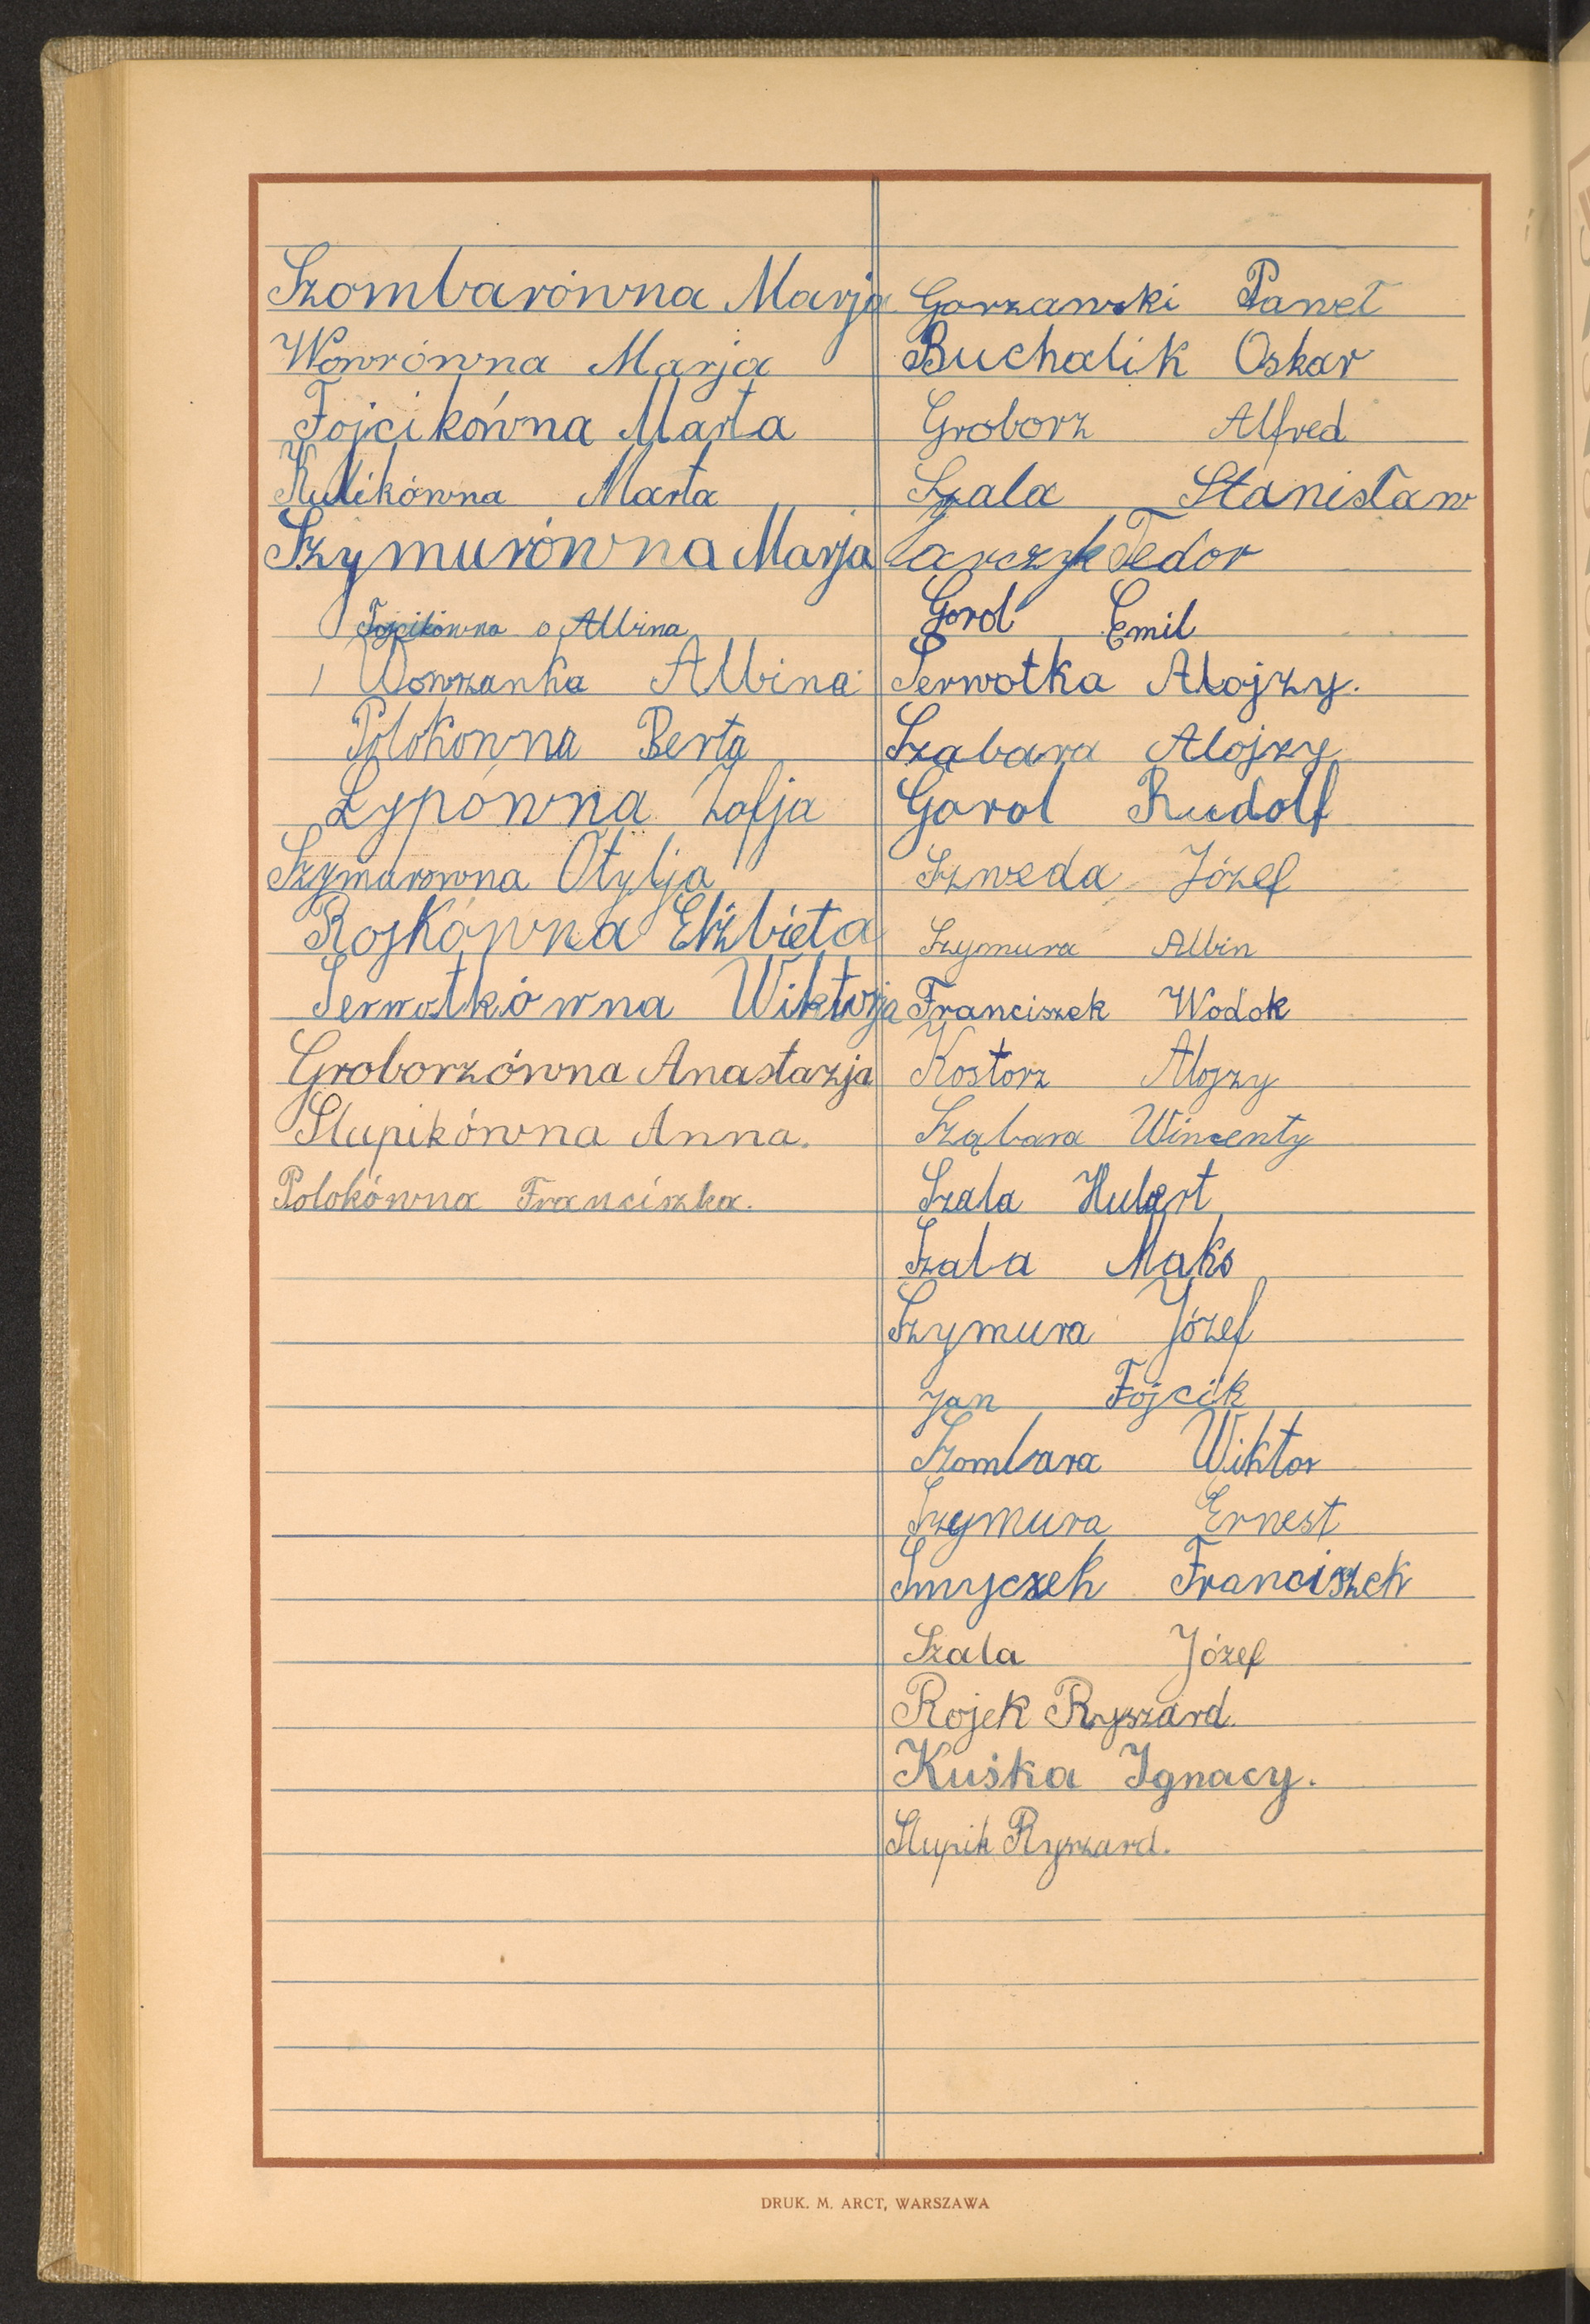 Szombarówna Marja
Wowrówna Marja
Fojcikówna Marta
Kulikówna Marta
Szymurówna Marja
Fojcikówna Albina
Wowrzanka Albina
Polokowna Berta
Lypówna Zofja
Szymurowna Otylja
Rojkówna Elżbieta
Serwotkówna Wiktorja
Groborzówna Anastazja
Słupikówna Anna.
Polokówna Franciszka.
Gorzawski Paweł
Buchalik Oskar
Groborz Alfred
Szala Stanisław
Tedor
Gorol Emil
Serwotka Alojzy.
Szabara Alojzy
Gorol Rudolf
Szweda Józef
Szymura Albin
Franciszek Wodok
Kostorz Alojzy
Sząbara Wincenty
Szala Hubert
Szala Maks
Szymura Józef
Jan Fojcik
Szombara Wiktor
Szymura Ernest
Smyczek Franciszek
Szala Józef
Rojek Ryszard.
Kuśka Ignacy.
Słupik Ryszard.
DRUK. M. ARCT, WARSZAWA